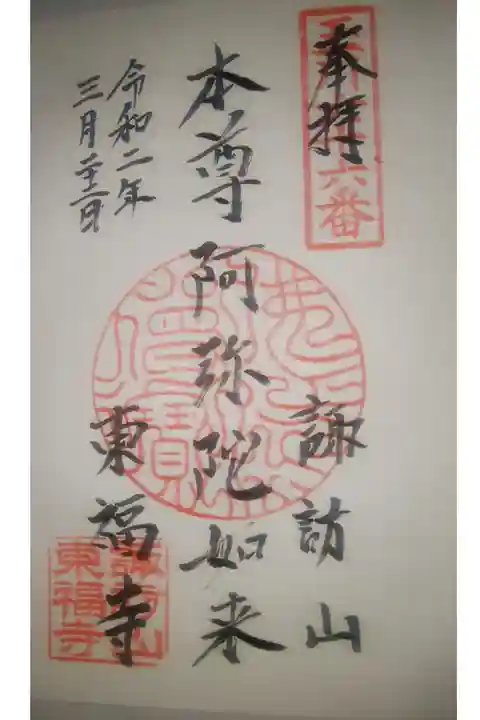 奉拝
六番
諏訪山
本尊阿弥陀如来
東福寺
令和二年
三月二十二日
諏訪山
東福寺